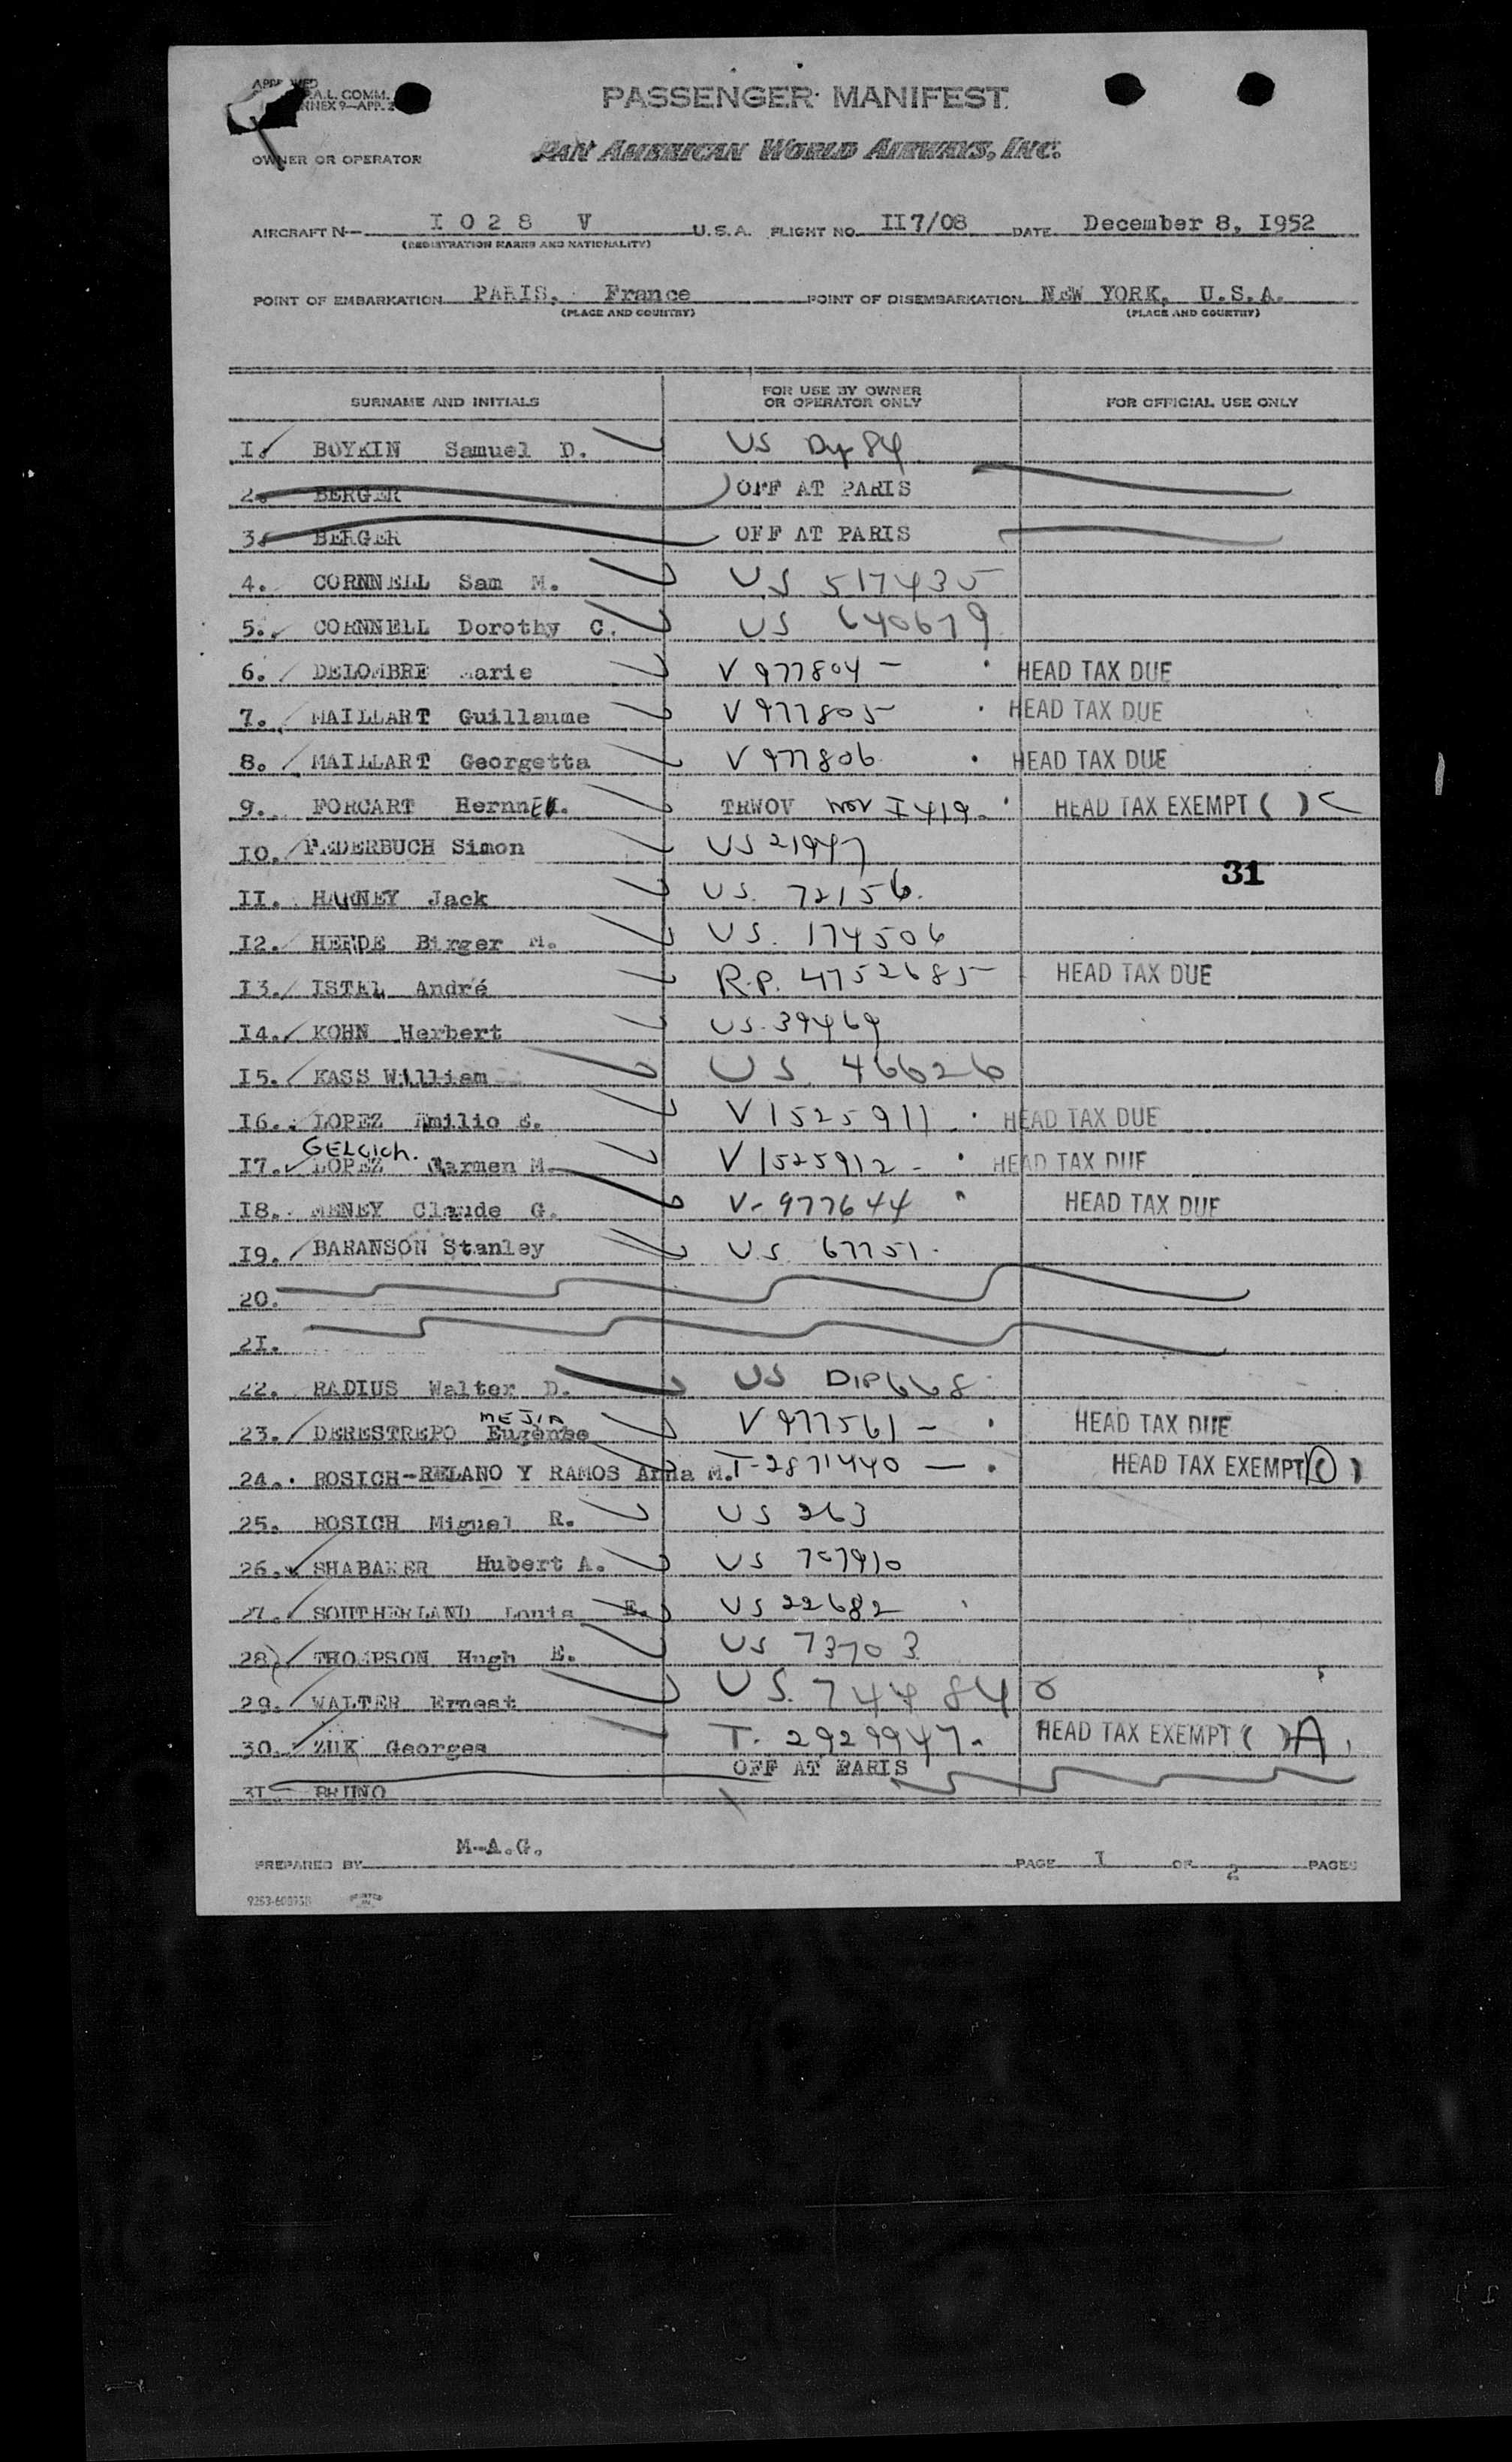 PASSENGER MANIFEST
A.L. COMM.
ANNEX 9—APP. 2
PAN AMERICAN WORLD AIRWAYS, INC.
OWNER OR OPERATOR
AIRCRAFT N— I 0 2 8 V U.S.A. FLIGHT NO. II7/08 DATE December 8, I952
(REGISTRATION MARKS AND NATIONALITY)
POINT OF EMBARKATION PARIS, France POINT OF DISEMBARKATION NEW YORK, U.S.A.
(PLACE AND COUNTRY) (PLACE AND COUNTRY)
SURNAME AND INITIALS FOR USE BY OWNER OR OPERATOR ONLY FOR OFFICIAL USE ONLY
I. BOYKIN Samuel D. US Dip 84
2. BERGER OFF AT PARIS
3. BERGER OFF AT PARIS
4. CORNNELL Sam M. US 517435
5. CORNNELL Dorothy C. US 640679
6. DELOMBRE Marie V 977804 — HEAD TAX DUE
7. MAILLART Guillaume V 977805 HEAD TAX DUE
8. MAILLART Georgetta V 977806 HEAD TAX DUE
9. FORCART TRWOV Nov I 419. HEAD TAX EXEMPT ( ) C
IO. FEDERBUCH Simon US 21947
31
II. HARNEY Jack US. 72156.
I2. HERDE Birger M. US. 174506
I3. ISTEL André R.P. 4752685 HEAD TAX DUE
I4. KOHN Herbert US. 39469
I5. KASS William US. 46626
I6. LOPEZ Emilio E. V 1525911. HEAD TAX DUE
GELCICH.
I7. LOPEZ Carmen M. V 1525912 - HEAD TAX DUE
I8. MENEY Claude G. V- 977644 HEAD TAX DUE
I9. BARANSON Stanley U.S. 67751.
20.
2I.
22. RADIUS Walter D. US DIP 668
MEJIA
23. DERESTREPO V 977561 — HEAD TAX DUE
24. ROSICH-RELANO Y RAMOS Anna M. T-2871440 — HEAD TAX EXEMPT (C)
25. ROSICH Miguel R. US 263
26. SHABAKER Hubert A. US 707910
27. SOUTHERLAND Louis E. US 22682
28) THOMPSON Hugh E. US 73703
29. WALTER Ernest US. 744840
30. ZUK Georges T. 2929947. HEAD TAX EXEMPT ( ) A
3I. BRUNO OFF AT PARIS
PREPARED BY M-A.G. PAGE I OF 2 PAGES